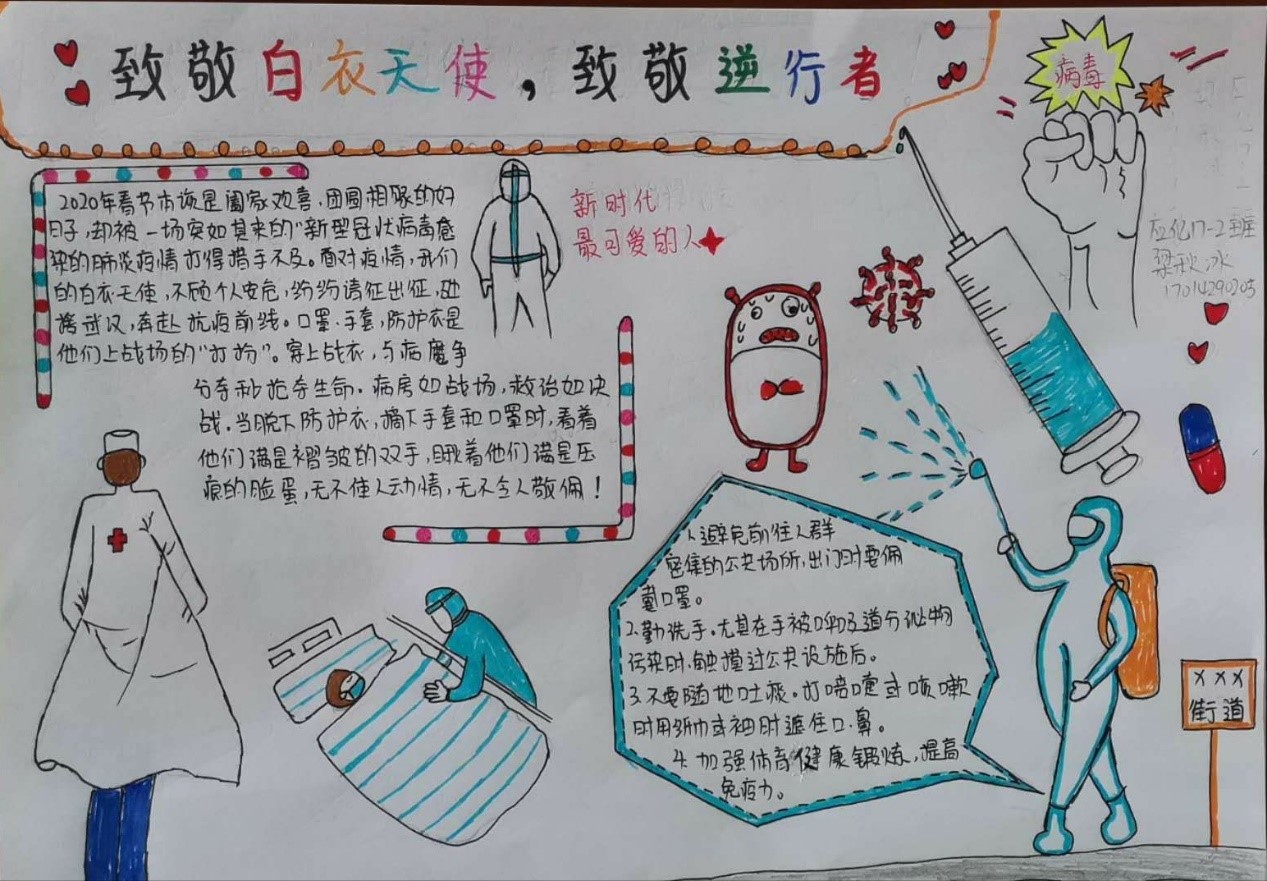 致敬白衣天使，致敬逆行者
病毒
2020年春节本该是阖家欢喜，团圆相聚的好
日子，却被一场突如其来的"新型冠状病毒感
染的肺炎疫情打得措手不及。面对疫情，我们
的白衣天使，不顾个人安危，纷纷请征出征，驰
援武汉，奔赴抗疫前线。口罩、手套，防护衣是
他们上战场的"打扮"。穿上战衣，与病魔争
分夺秒抢夺生命。病房如战场，救治如决
战。当脱下防护衣，摘下手套和口罩时，看着
他们满是褶皱的双手，瞅着他们满是压
痕的脸蛋，无不使人动情，无不令人敬佩！
新时代
最可爱的人
应化17-2班
梁秋冰
17014290203
1.避免前往人群
密集的公共场所，出门时要佩
戴口罩。
2.勤洗手。尤其在手被呼吸道分泌物
污染时，触摸过公共设施后。
3.不要随地吐痰。打喷嚏或咳嗽
时用纸巾或袖肘遮住口、鼻。
4.加强体育健康锻炼，提高
免疫力。
XXX
街道